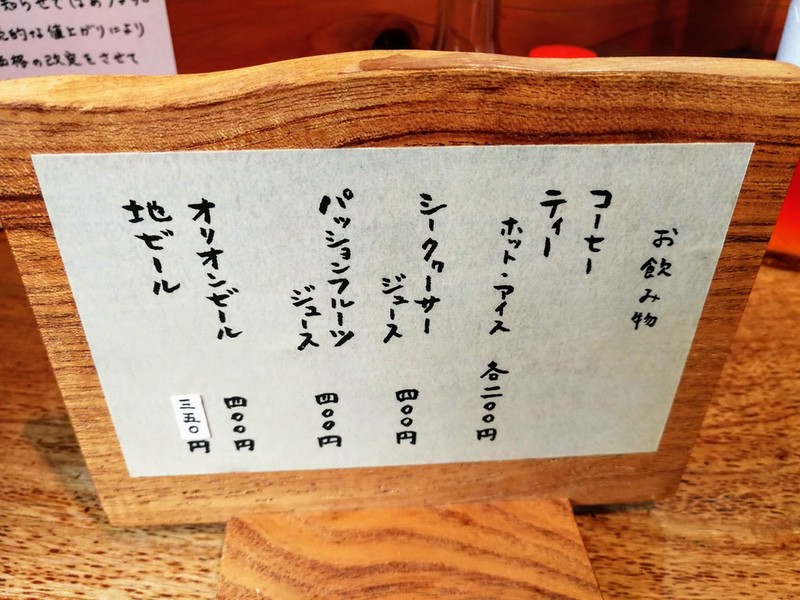 お飲み物
コーヒー
ティー
ホット・アイス 各二〇〇円
シークヮーサー
ジュース 四〇〇円
パッションフルーツ
ジュース 四〇〇円
オリオンビール 四〇〇円
地ビール 三五〇円
知らせ
的な値上がりにより
の改定をさせて